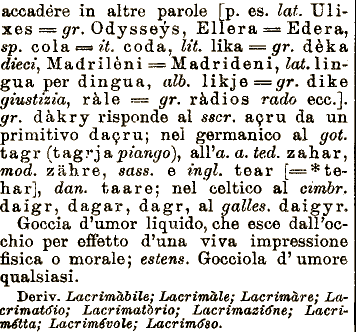 accadére in altre parole [p. es. lat. Uli-
xes = gr. Odysseýs, Ellera = Edera,
sp. cola = it. coda, lit. lika = gr. dèka
dieci, Madrilèni = Madrideni, lat. lin-
gua per dingua, alb. likje = gr. dike
giustizia, ràle = gr. ràdios rado ecc.].
gr. dàkry risponde al sscr. açru da un
primitivo daçru; nel germanico al got.
tagr (tagrja piango), all'a. a. ted. zahar,
mod. zähre, sass. e ingl. tear [= *te-
har], dan. taare; nel celtico al cimbr.
daigr, dagar, dagr, al galles. daigyr.
Goccia d'umor liquido, che esce dall'oc-
chio per effetto d'una viva impressione
fisica o morale; estens. Gocciola d'umore
qualsiasi.
Deriv. Lacrimàbile; Lacrimàle; Lacrimàre; La-
crimatóio; Lacrimatòrio; Lacrimazióne; Lacri-
métta; Lacrimévole; Lacrimóso.